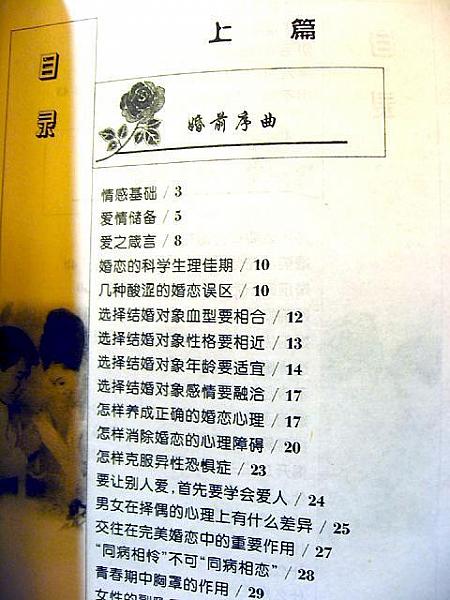 目录
上篇
婚前序曲
情感基础 / 3
爱情储备 / 5
爱之箴言 / 8
婚恋的科学生理佳期 / 10
几种酸涩的婚恋误区 / 10
选择结婚对象血型要相合 / 12
选择结婚对象性格要相近 / 13
选择结婚对象年龄要适宜 / 14
选择结婚对象感情要融洽 / 17
怎样养成正确的婚恋心理 / 17
怎样消除婚恋的心理障碍 / 20
怎样克服异性恐惧症 / 23
要让别人爱，首先要学会爱人 / 24
男女在择偶的心理上有什么差异 / 25
交往在完美婚恋中的重要作用 / 27
“同病相怜”不可“同病相恋” / 28
青春期中胸罩的作用 / 29
女性的副